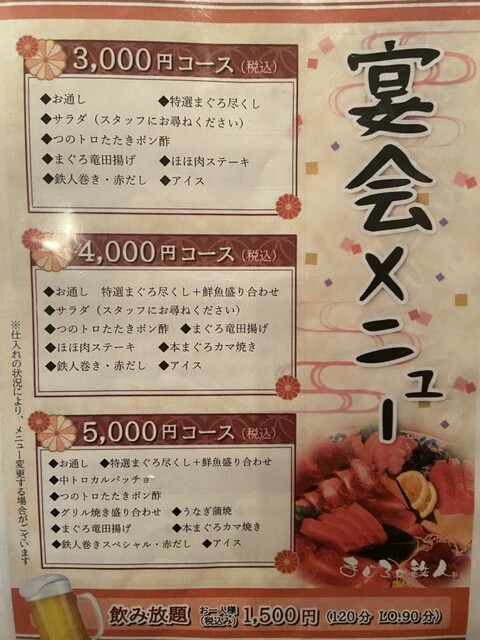 宴会メニュー
3,000円コース(税込)
◆お通し ◆特選まぐろ尽くし
◆サラダ(スタッフにお尋ねください)
◆つのトロたたきポン酢
◆まぐろ竜田揚げ ◆ほほ肉ステーキ
◆鉄人巻き・赤だし ◆アイス
4,000円コース(税込)
◆お通し 特選まぐろ尽くし+鮮魚盛り合わせ
◆サラダ(スタッフにお尋ねください)
◆つのトロたたきポン酢 ◆まぐろ竜田揚げ
◆ほほ肉ステーキ ◆本まぐろカマ焼き
◆鉄人巻き・赤だし ◆アイス
5,000円コース(税込)
◆お通し ◆特選まぐろ尽くし+鮮魚盛り合わせ
◆中トロカルパッチョ
◆つのトロたたきポン酢
◆グリル焼き盛り合わせ ◆うなぎ蒲焼
◆まぐろ竜田揚げ ◆本まぐろカマ焼き
◆鉄人巻きスペシャル・赤だし ◆アイス
※仕入れの状況により、メニュー変更する場合がございます
まぐろの鉄人
飲み放題 お一人様(税込み) 1,500円 (120分 LO.90分)